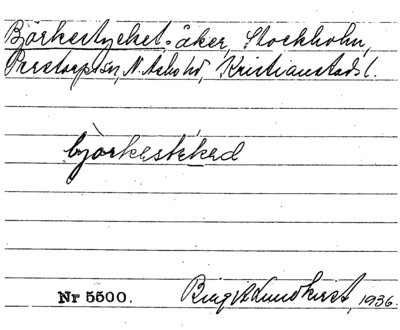 Björkestycket, åker, Stockholm,
Perstorps sn, N. Åsbo hd, Kristianstads l.
björkestéked
Nr 5500. Birgit Lundkvist, 1936.